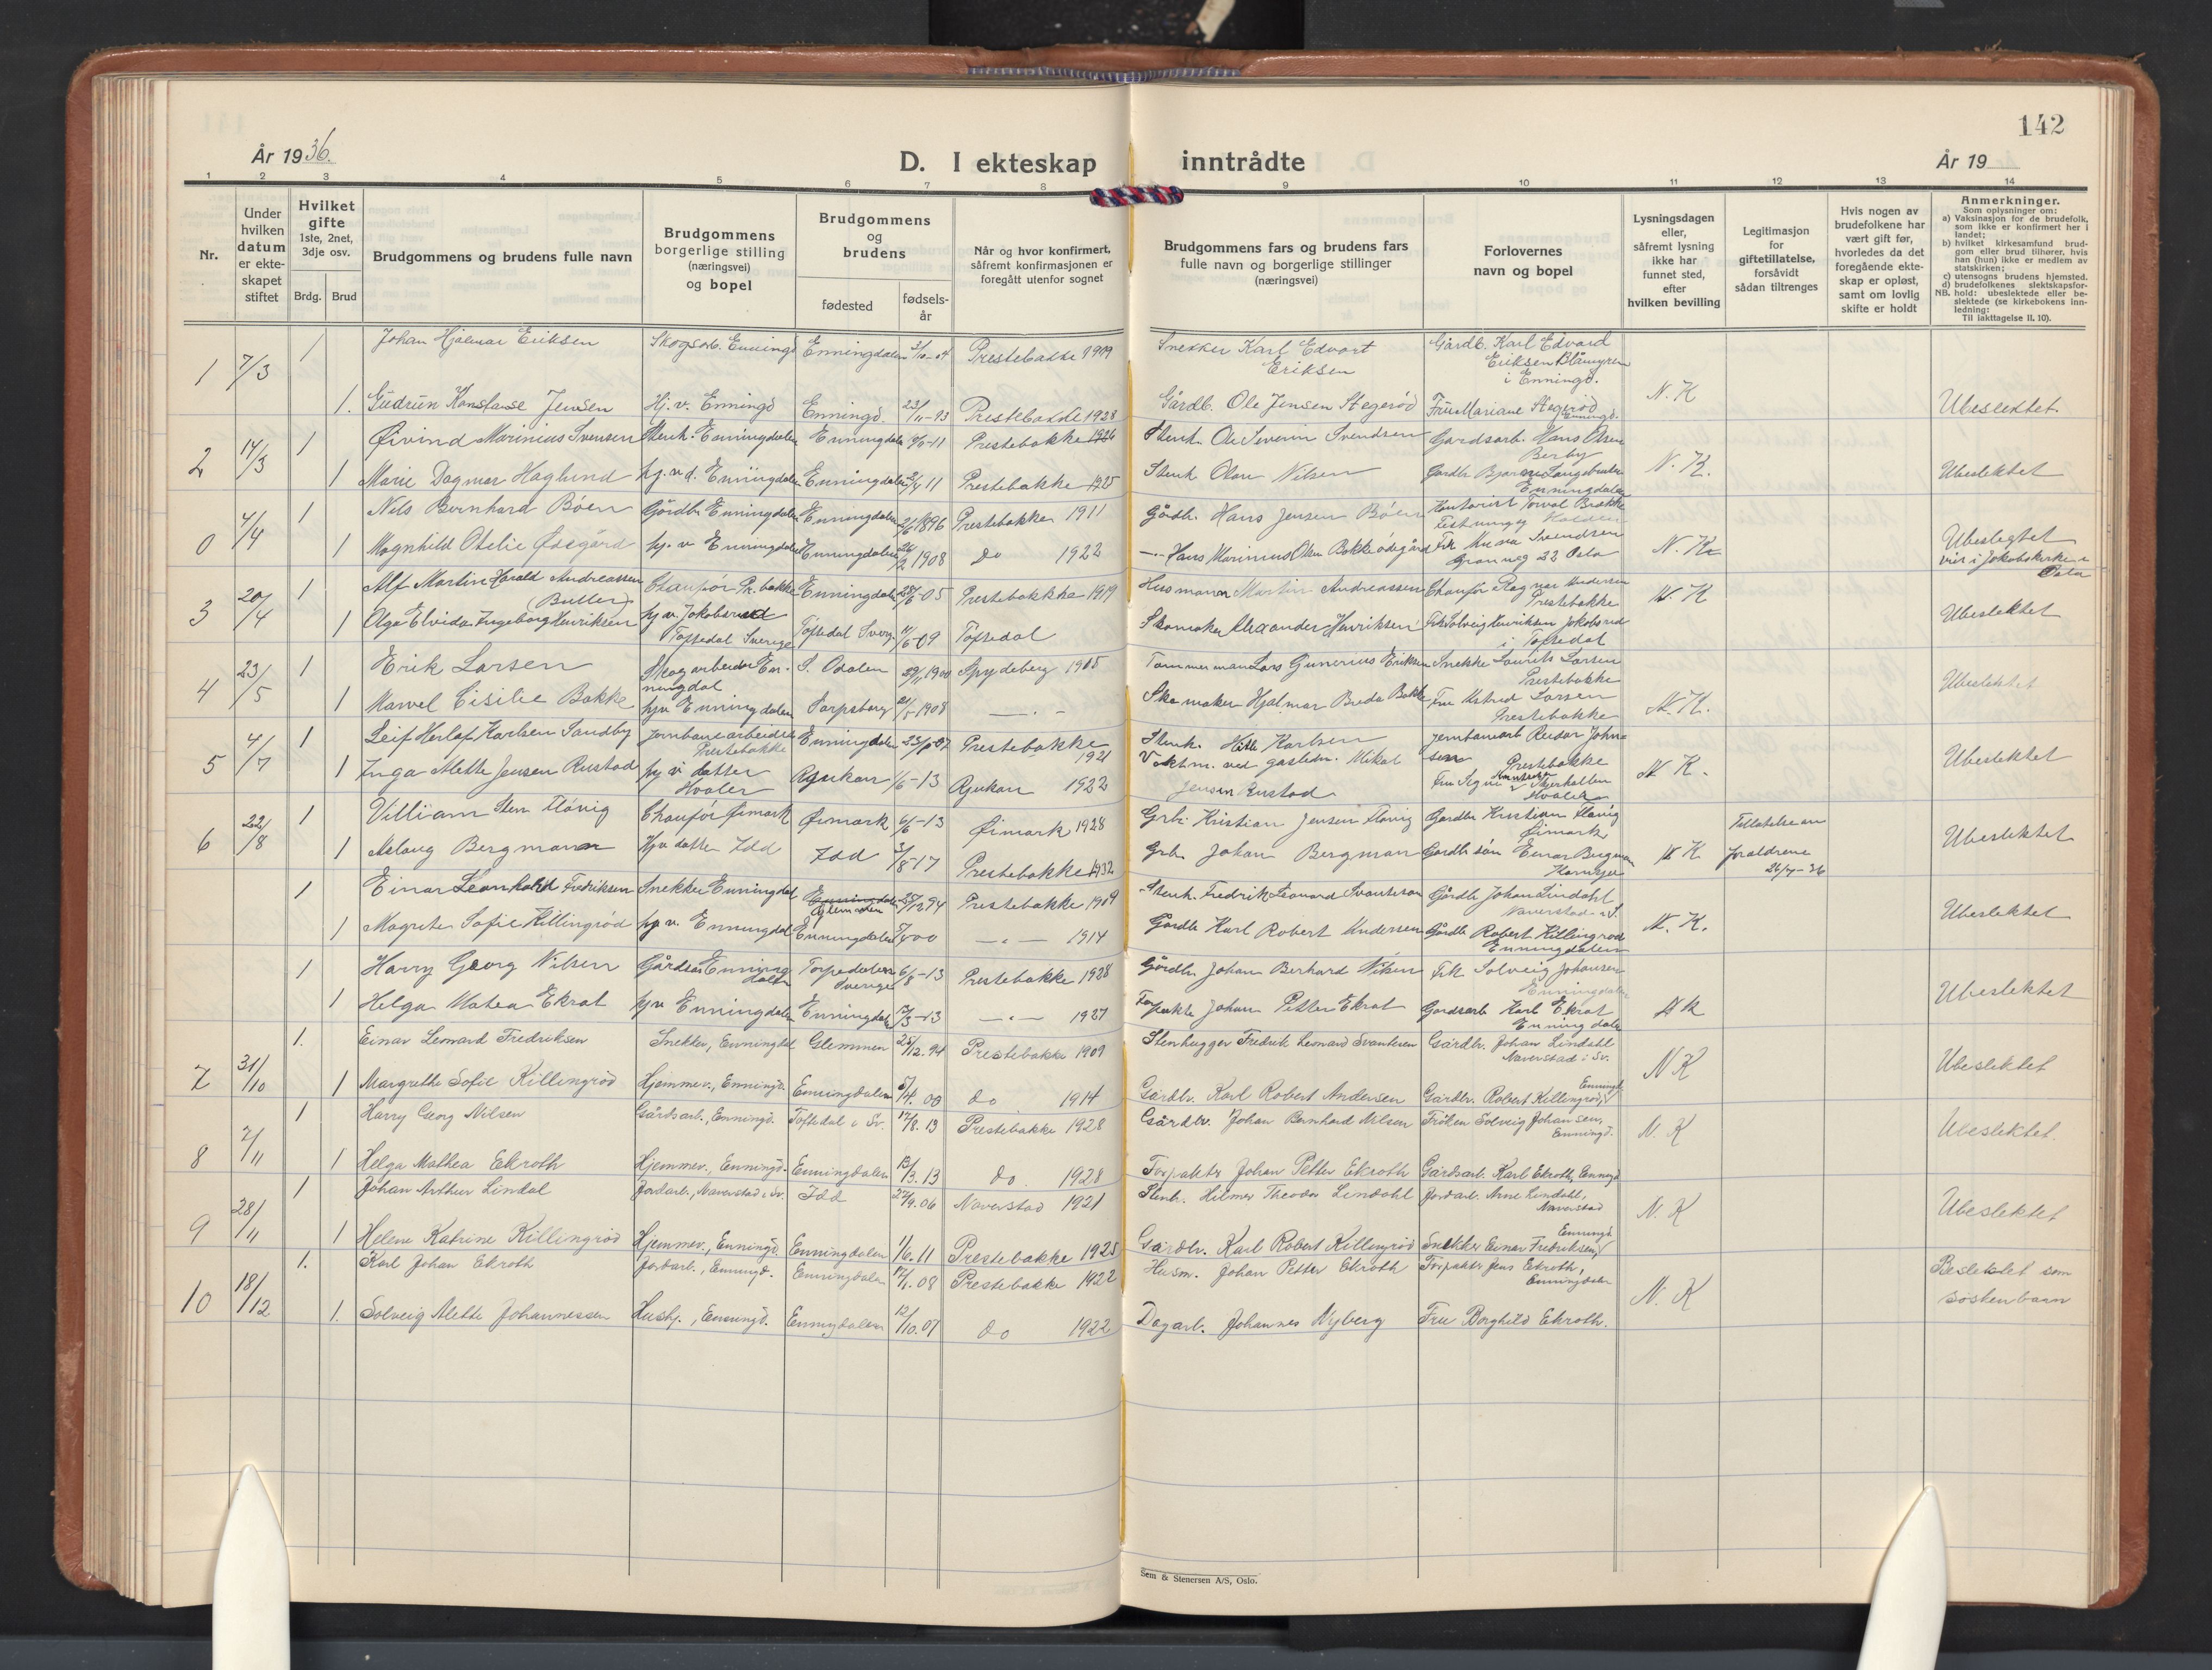 142
År 1936.
D. I ekteskap inntrådte
År 19
1 2 3 4 5 6 7 8 9 10 11 12 13 14
Nr.
Under hvilken datum er ekteskapet stiftet
Hvilket gifte 1ste, 2net, 3dje osv.
Brdg. Brud
Brudgommens og brudens fulle navn
Brudgommens borgerlige stilling (næringsvei) og bopel
Brudgommens og brudens
fødested
fødsels-år
Når og hvor konfirmert, såfremt konfirmasjonen er foregått utenfor sognet
Brudgommens fars og brudens fars fulle navn og borgerlige stillinger (næringsvei)
Forlovernes navn og bopel
Lysningsdagen eller, såfremt lysning ikke har funnet sted, efter hvilken bevilling
Legitimasjon for giftetillatelse, forsåvidt sådan tiltrenges
Hvis nogen av brudefolkene har vært gift før, hvorledes da det foregående ekteskap er opløst, samt om lovlig skifte er holdt
Anmerkninger.
Som oplysninger om:
a) Vaksinasjon for de brudefolk, som ikke er konfirmert her i landet;
b) hvilket kirkesamfund brudgom eller brud tilhører, hvis han (hun) ikke er medlem av statskirken;
c) utensogns brudens hjemsted.
d) brudefolkenes slektskapsforhold: ubeslektede eller beslektede (se kirkebokens innledning:
NB.
Til iakttagelse II. 10).
1 7/3 1 Johan Hjalmar Eriksen Skogsarb. Enningd Enningdalen 3/10-04 Prestebakke 1919 Snekker Karl Edvart Eriksen Gårdb. Karl Edvard Eriksen Blåmyren i Enningd.
1. Gudrun Konstanse Jensen Hj. v. Enningd Enningd. 23/11-13 Prestebakke 1928 Gårdb. Ole Jensen Stegerød Fru Mariane Stegerød Enningd. N. K Ubeslektet.
2 14/3 1 Øivind Marinius Svensen Stenh. Enningdalen Enningdalen -11 Prestebakke 1926 Stenh. Ole Severin Svendsen Gardsarb. Hans Olsen Berby
1 Marie Dagmar Haglund hj. v. d. Enningdalen Enningdalen 11 Prestebakke 1925 Stenh Olav Nilsen Gardbr Enningdalen N. K. Ubeslektet
0 4/4 1 Nils Bernhard Bøen Gårdbr Enningdalen Enningdalen 1896 Prestebakke 1911 Gårdb. Hans Jensen Bøen Kontorist Torval Brække Halden
1 Magnhild Otelie Ødegård hj. v Enningdalen Enningdalen 1908 do 1922 Hans Marinius Olsen Bakke ødegård Frk Svendsen 22 Oslo N. K. Ubeslegtet viet i Jakobskirke i Oslo
3 20/4 1 Alf Martin Harald Andreassen Butler Chaufør Pr. bakke Enningdalen -05 Prestebakke 1919 Husmann Martin Andreassen Chaufør Ragnar Andersen Prestebakke N. K
1 Olga Elvida Ingeborg Henriksen hj v. Jakobsrud Töftedal Sverige Töftedal Sverg -09 Töftedal Skomaker Alexander Henriksen Frk Solveig Henriksen Jakobsrud i Töftedal Ubeslektet
4 23/5 1 Erik Larsen Skogarbeider Enningdal S. Odalen 1900 Spydeberg 1905 Tømmermann Lars Gunerius Eriksen Snekke Laurits Larsen Prestebakke Ubeslektet
1 Marvel Cisilie Bakke hjv Enningdalen Sarpsborg 21/5-1908 Skomaker Hjalmar Breda Bakke Fru Astrid Larsen Prestebakke N. K.
5 4/7 1 Leif Herlof Karlsen Sandby Jernbanearbeider Prestebakke Enningdalen Prestebakke 1921 Stenh. Karlsen Jernbanearb Reidar Johnsen Prestebakke
1 Inga Alette Jensen Rustad hj v datter Hvaler Rjukan 1/6-13 Rjukan 1922 Vaktm. ved gasledn. Mikal Jensen Rustad Fru Signe Skjærhallen Hvaler N K. Ubeslektet
6 22/8 1 Villiam Sten Flövig Chaufør Øimark Øimark 6/6-13 Øimark 1928 Grbr Kristian Jensen Flövig Gardbr Kristian Flövig Øimark
1 Aslaug Bergmann Hjv datter Idd Idd 3/8-17 Prestebakke 1932 Grb. Johan Bergman Gardbr søn Einar Bergman Kornsjø N K Tillatelse av foreldrene 26/7-36 Ubeslektet
1 Einar Leonhard Fredriksen Snekker Enningdal Glemmen 25/12 94 Prestebakke 1909 Stenh. Fredrik Leonard Svanteson Gårdbr Johan Lindahl Naverstad i S.
1 Magrete Sofie Killingrød hj v. Enningdal Enningdalen 5/4 00 — " — 1914 Gardbr Karl Robert Andersen Gårdbr Robert Killingrød Enningdalen N. K. Ubeslektet
1 Harry Georg Nilsen Gårdsar Enningdalen Torpedalen Sverige -13 Prestebakke 1928 Gårdbr. Johan Berhard Nilsen Frk Solveig Johansen Enningdalen
1 Helga Matea Ekrot hjv Enningdalen Enningdalen 13/3-13 — " — 1927 Forpakte Johan Petter Ekrot Gardsarb Karl Ekrot Enningdalen N k Ubeslektet
7 31/10 1. Einar Leonard Fredriksen Snekker, Enningdal Glemmen 25/12. 94 Prestebakke 1909 Stenhugger Fredrik Leonard Svantesen Gårdbr. Johan Lindahl Naverstad i Sv.
1 Margrethe Sofie Killingrød Hjemmev., Enningd. Enningdalen 5/4. 00 do 1914 Gårdbr. Karl Robert Andersen Gårdbr. Robert Killingrød, Enningd. N K Ubeslektet
8 7/11 1 Harry Georg Nilsen Gårdsarb., Enningd. Töftedal i Sv. 17/8. 13 Prestebakke 1928 Gårdbr. Johan Bernhard Nilsen Frøken Solveig Johansen, Enningd. N. K Ubeslektet.
1 Helga Mathea Ekroth Hjemmev., Enningd. Enningdalen 13/3. 13 do. 1928 Forpakter Johan Petter Ekroth Gårdsarb. Karl Ekroth, Enningd
9 28/11 1 Johan Arthur Lindal Jordarb., Naverstad i Sv. Idd 27/9. 06 Naverstad 1921 Stenh. Hilmer Theodor Lindahl Jordarb. Arne Lindahl, Naverstad N. K Ubeslektet
1 Helene Katrine Killingrød Hjemmev., Enningd. Enningdalen 1/6. 11 Prestebakke 1925 Gårdbr. Karl Robert Killingrød Snekker Einar Fredriksen, Enningd
10 18/12 1. Karl Johan Ekroth Jordarb., Enningd. Enningdalen 17/1. 08 Prestebakke 1922 Husm. Johan Petter Ekroth Forpakter Jens Ekroth, Enningdalen N. K Beslektet som søskenbarn
1. Solveig Alette Johannessen Hushj., Enningd. Enningdalen 12/10. 07 do 1922 Dagarb. Johannes Nyberg Fru Borghild Ekroth.
Sem & Stenersen A/S, Oslo.